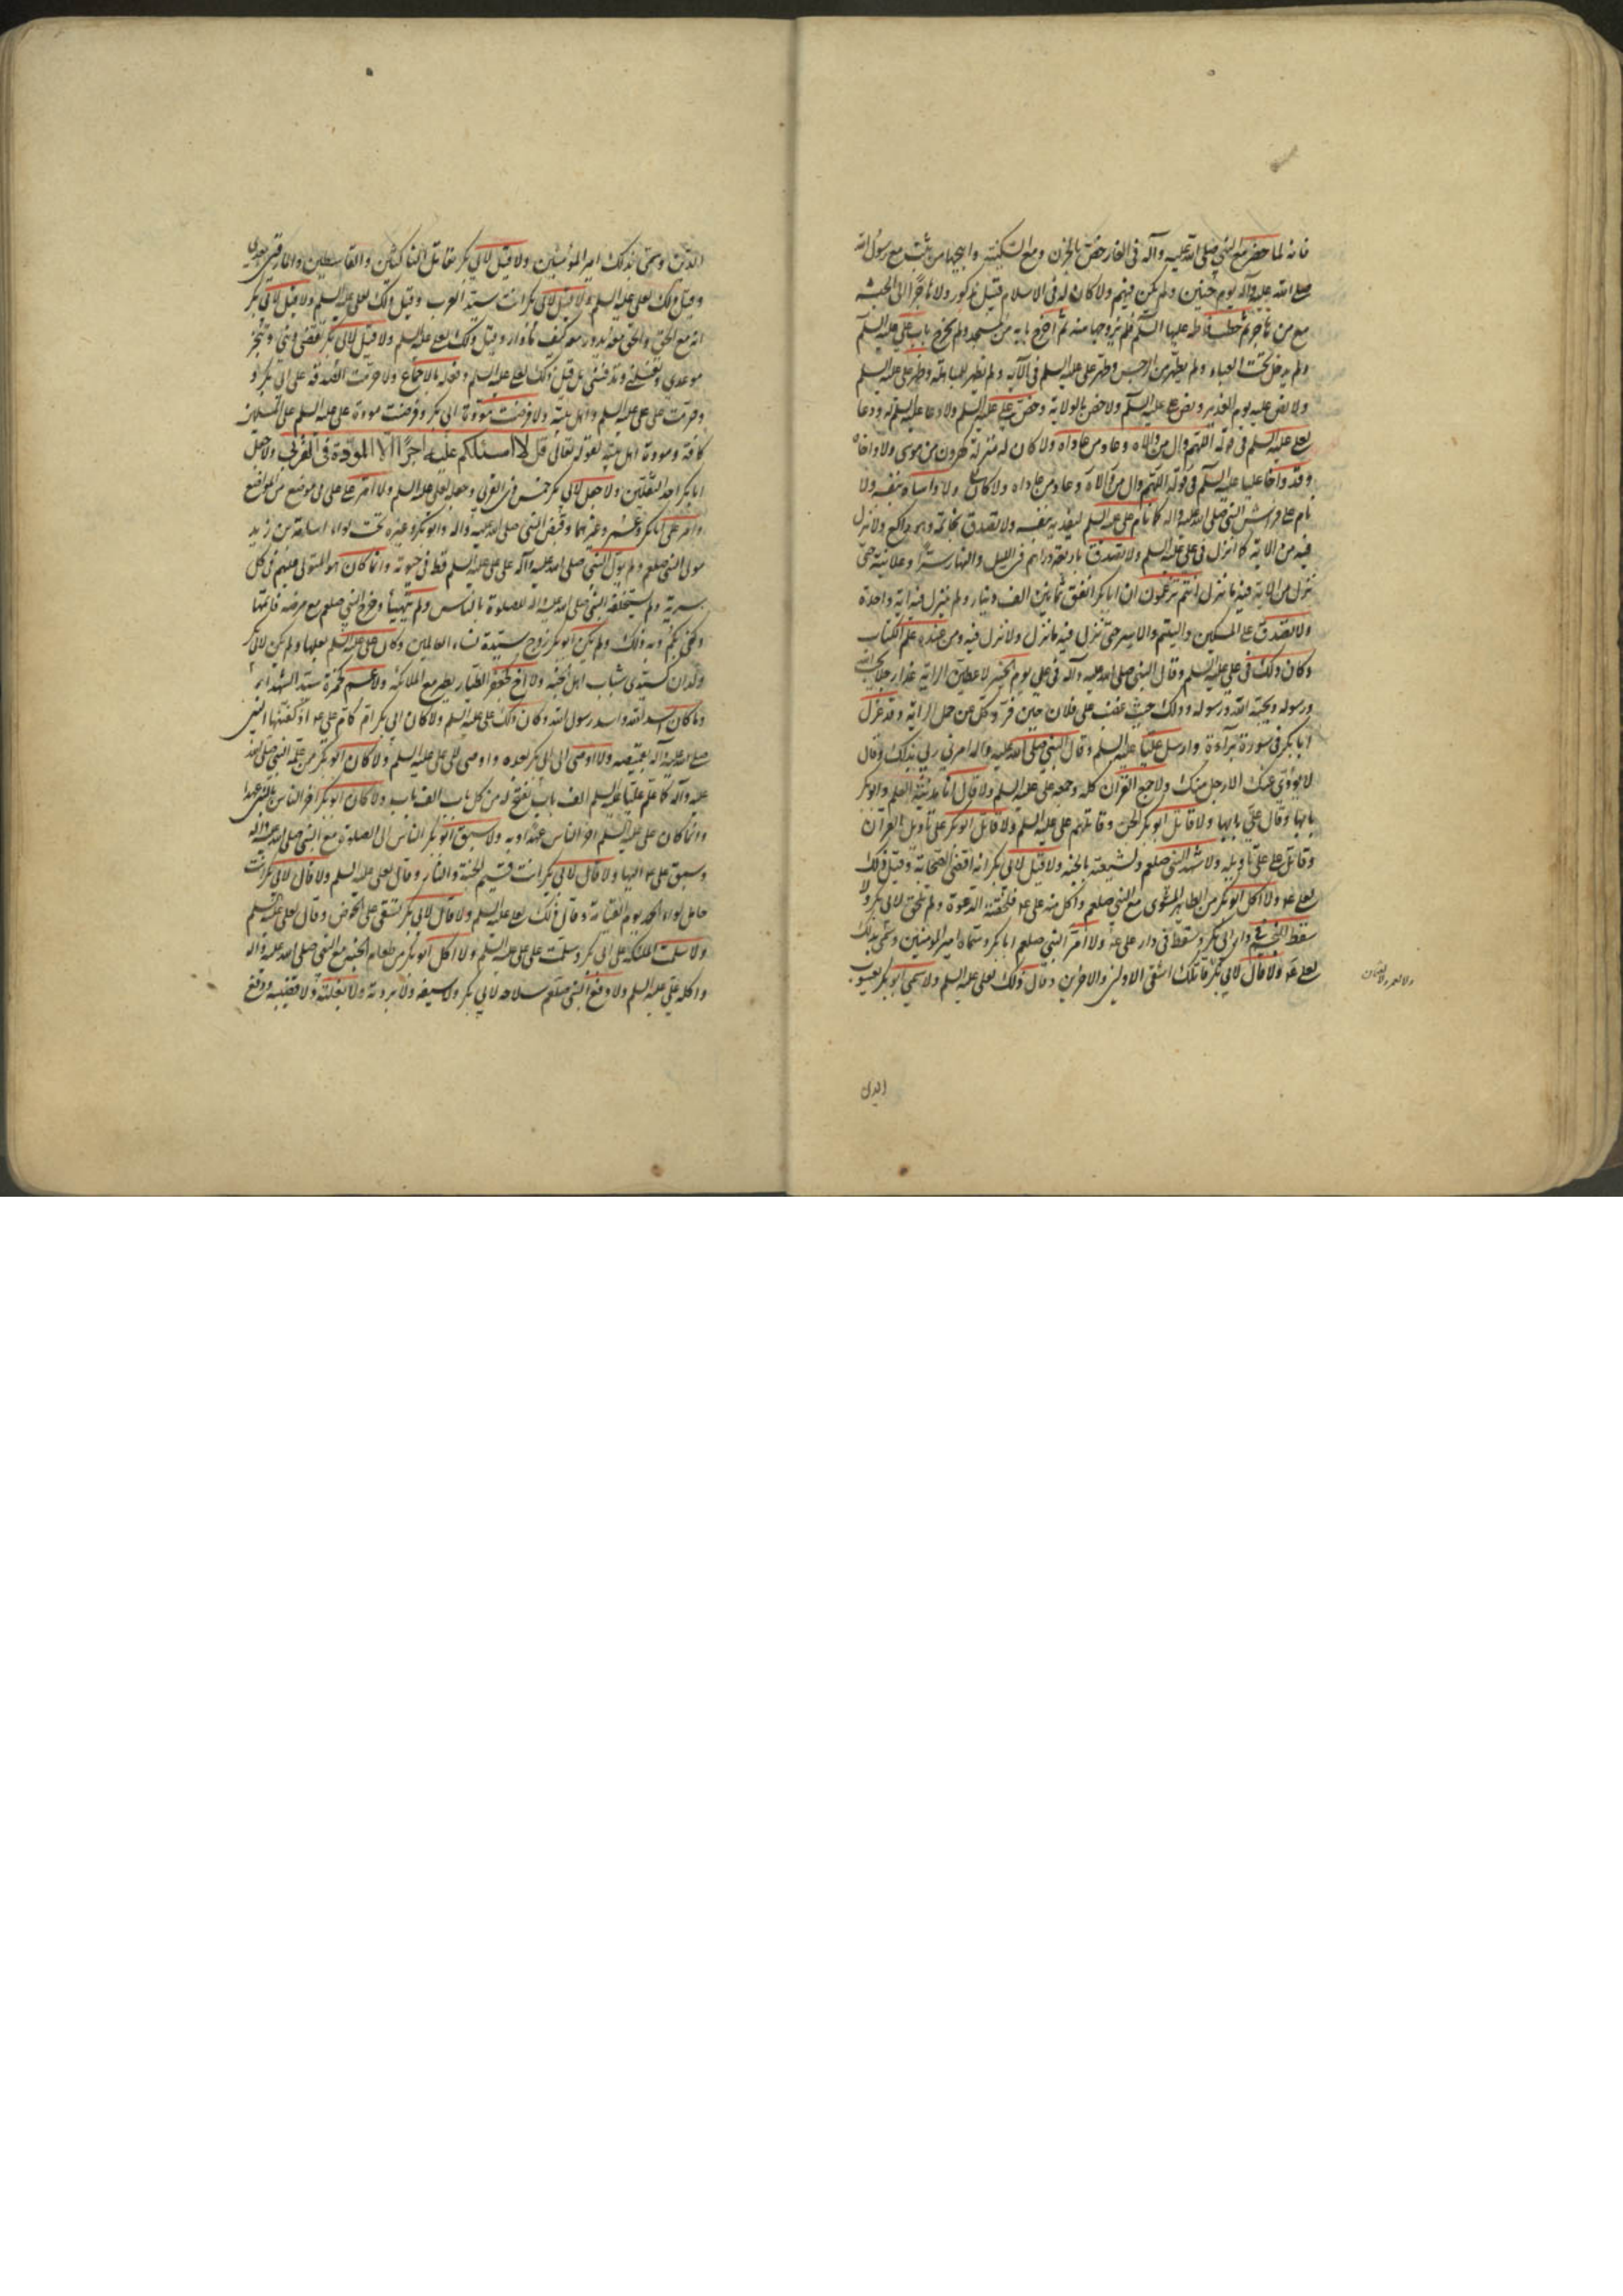 فانه لما حضر مع النبي صلى الله عليه وآله في الغار خص بالحزن ومنع السكينة ثبت مع رسول الله
صلى الله عليه وآله يوم حنين ولم يكن فيهم ولا كان له في الاسلام قتيل مذكور ولا هاجر الى الحبشة
مع من هاجر ثم خطب فاطمة عليها السلم فلم يزوجها منه ثم أخرج بابه من المسجد ولم يخرج باب علي عليه السلم
ولم يدخل تحت العباء ولم يطهر من الرجس وطهر علي عليه السلم في الآية ولم يظهر للمباهلة وظهر علي عليه السلم
ولا نص عليه يوم الغدير ونص على علي عليه السلم ولا خص بالولاية وخص علي عليه السلم ولا دعا عليه السلم له ودعا
لعلي عليه السلم في قوله اللهم وال من والاه وعاد من عاداه ولا كان له منزلة هرون من موسى ولا واخاه
وقد واخا عليا عليه السلم في قوله اللهم وال من والاه وعاد من عاداه ولا كان ولا واساه بنفسه ولا
نام على فراش النبي صلى الله عليه وآله كما نام علي عليه السلم ليفديه بنفسه ولا تصدق بخاتمه وهو راكع ولا نزل
فيه من الآية كما انزل في علي عليه السلم ولا تصدق باربعة دراهم في الليل والنهار سرا وعلانية حتى
نزل من الآية فيه ما نزل انتم تزعمون ان ابا بكر انفق ثمانين الف دينار ولم ينزل فيه آية واحدة
ولا تصدق على المسكين واليتيم والاسير حتى نزل فيه ما نزل ولا نزل فيه ومن عنده علم الكتاب
وكان ذلك في علي عليه السلم وقال النبي صلى الله عليه وآله في علي يوم الخيبر لاعطين الراية غدا رجلا يحب الله
ورسوله ويحبه الله ورسوله وذلك حيث غضب على فلان حين فر ونكل عن حمل الراية وقد عزل
ابا بكر في سورة براءة وارسل عليا عليه السلم وقال النبي صلى الله عليه وآله امرني ربي بذلك وقال
لا يؤدي عنك الا رجل منك ولا جمع القرآن كله وجمعه علي عليه السلم ولا قال انا مدينة العلم وابو بكر
بابها وقال علي بابها ولا قاتل ابو بكر الجن وقاتلهم علي عليه السلم ولا قاتل ابو بكر على تأويل القرآن
وقاتل علي على تأويله ولا شهد النبي صلعم ولشيعته بالجنة ولا قيل لابي بكر انه اقضى الصحابة وقيل ذلك
لعلي عم ولا اكل ابو بكر من الطاير المشوي مع النبي صلعم واكل منه علي عم فلحقته الدعوة ولم تلحق لابي بكر ولا
سقط النجم في دار ابي بكر وسقط في دار علي عم ولا أمر النبي صلعم ابا بكر وسماه امير المومنين وسمى بذلك
لعلي عم ولا قال لابي بكر قاتلك اشقى الاولين والآخرين وقال ذلك لعلي عليه السلم ولا سمي ابو بكر يعسوب
الدين
الدين وسمى بذلك امير المؤمنين ولا قيل لابي بكر مقاتل الناكثين والقاسطين والمارقين بعدي
وقيل ذلك لعلي عليه السلم ولا قيل لابي بكر انت سيد العرب وقيل ذلك لعلي عليه السلم ولا قيل لابي بكر
انه مع الحق والحق معه يدور معه كيف ما دار وقيل ذلك لعلي عليه السلم ولا قيل لابي بكر تقضي ديني وتنجز
موعدي وتغسلني وتدفنني بل قيل ذلك لعلي عليه السلم وفعله بالاجماع ولا حرمت الصدقة على ابي بكر و
وحرمت على علي عليه السلم واهل بيته ولا فرضت مودة ابي بكر وفرضت مودة علي عليه السلم على المسلمين
كافة ومودة اهل بيته لقوله تعالى قل لا اسئلكم عليه اجرا الا المودة في القربى ولا جعل
ابا بكر احد الثقلين ولا جعل لابي بكر خمس ذي القربى وجعله لعلي عليه السلم ولا امر على علي في موضع من المواضع
وامر على ابا بكر وعمر وغيرهما وقبض النبي صلى الله عليه وآله وابو بكر وغيره تحت لواء اسامة بن زيد
مولى النبي صلعم ولم يول النبي صلى الله عليه وآله على علي عليه السلم قط في حيوته وانما كان هو المتولي عليهم في كل
سرية ولم يستخلفه النبي صلى الله عليه وآله للصلوة بالناس ولم يتهيأ وخرج النبي صلعم مع مرضه
ولم يكن ابو بكر زوج سيدة نساء العالمين وكان علي عليه السلم بعلها ولم يكن لابي بكر
ولدان كسيدي شباب اهل الجنة ولا اخ كجعفر الطيار يطير مع الملائكة ولا عم كحمزة سيد الشهداء
وما كان اسد الله واسد رسول الله وكان ذلك علي عليه السلم ولا كان ابي بكر ام كام علي عم اذ كفنها النبي
صلى الله عليه وآله بقميصه ولا اوصى الى ابي بكر بعده واوصى الى علي عليه السلم ولا كان ابو بكر ممن علمه النبي صلى الله
عليه وآله كما علم عليا عليه السلم الف باب يفتح له من كل باب الف باب ولا كان ابو بكر اخر الناس بالنبي عهدا
وانما كان علي عليه السلم اخر الناس عهدا به ولا سبق ابو بكر الناس الى الصلوة مع النبي صلى الله عليه وآله
وسبق علي عم اليها ولا قال لابي بكر انت قسيم الجنة والنار وقال لعلي عليه السلم ولا قال لابي بكر انت
حامل لواء الحمد يوم القيامة وقال ذلك لعلي عليه السلم ولا قال لابي بكر تسقي على الحوض وقال لعلي عليه السلم
ولا سلمت الملئكة على ابي بكر وسلمت على علي عليه السلم ولا اكل ابو بكر من طعام الجنة مع النبي صلى الله عليه وآله
واكله علي عليه السلم ولا دفع النبي صلعم سلاحه لابي بكر ولا سيفه ولا بردته ولا بغلته ولا قضيبه ودفع